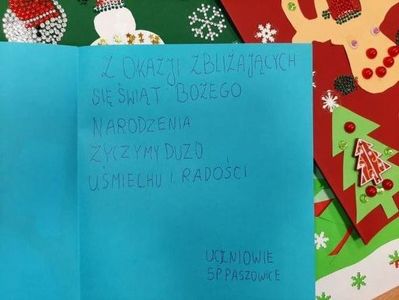 Z OKAZJI ZBLIŻAJĄCYCH
SIĘ ŚWIĄT BOŻEGO
NARODZENIA
ŻYCZYMY DUŻO
UŚMIECHU I RADOŚCI
UCZNIOWIE
SP PASZOWICE